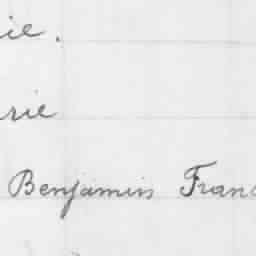 ie.
rie
Benjamin Fran